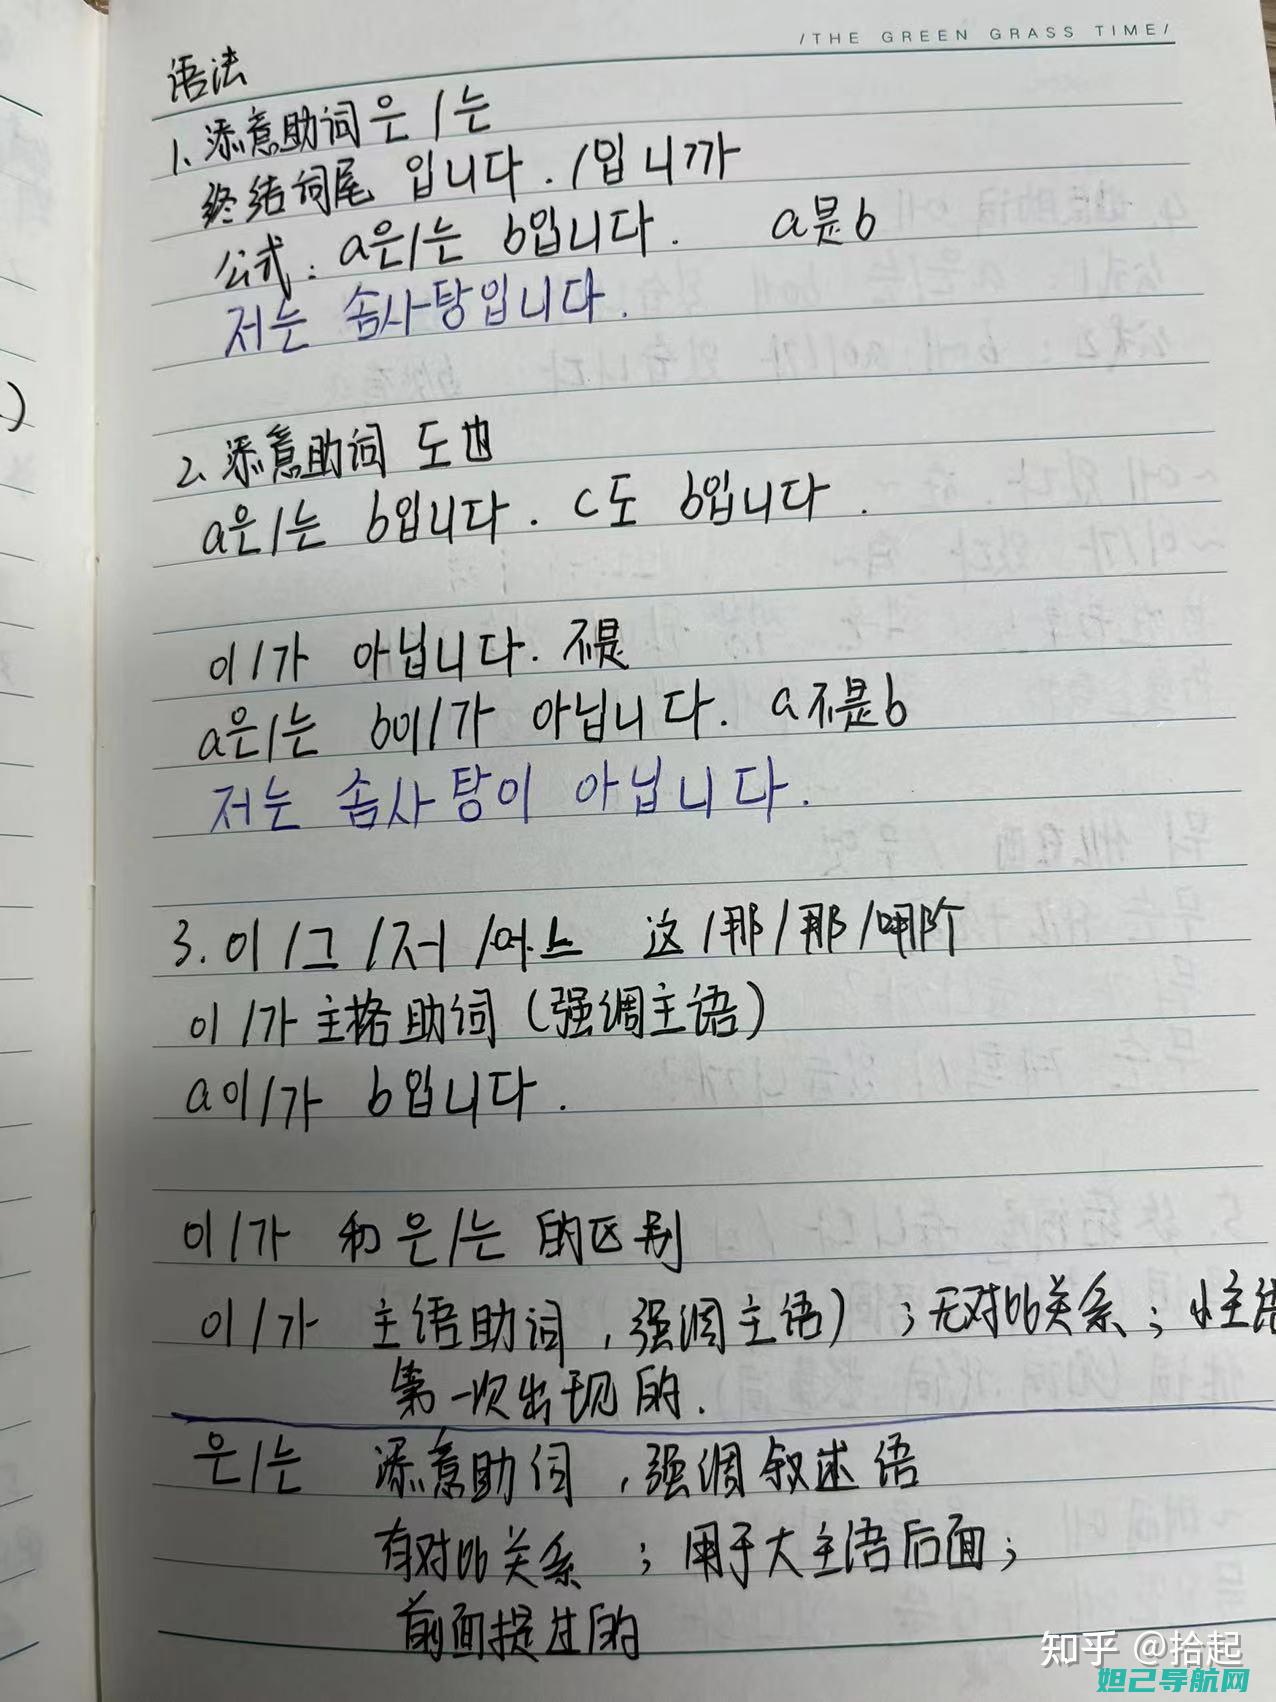 /THE GREEN GRASS TIME/
语法
1、添意助词은/는
终结词尾 입니다./입니까
公式:a은/는 b입니다. a是b
저는 솜사탕입니다.
2、添意助词 도也
a은/는 b입니다. c도 b입니다.
이/가 아닙니다. 不是
a은/는 b이/가 아닙니다. a不是b
저는 솜사탕이 아닙니다.
3.이/그/저/어느 这/那/那/哪个
이/가主格助词(强调主语)
a이/가 b입니다.
이/가 和은/는 的区别
이/가 主语助词,强调主语);无对比关系;小主语
第一次出现的.
은/는 添意助词,强调叙述语
有对比关系;用于大主语后面;
前面提过的
知乎 @拾起
妲己导航网